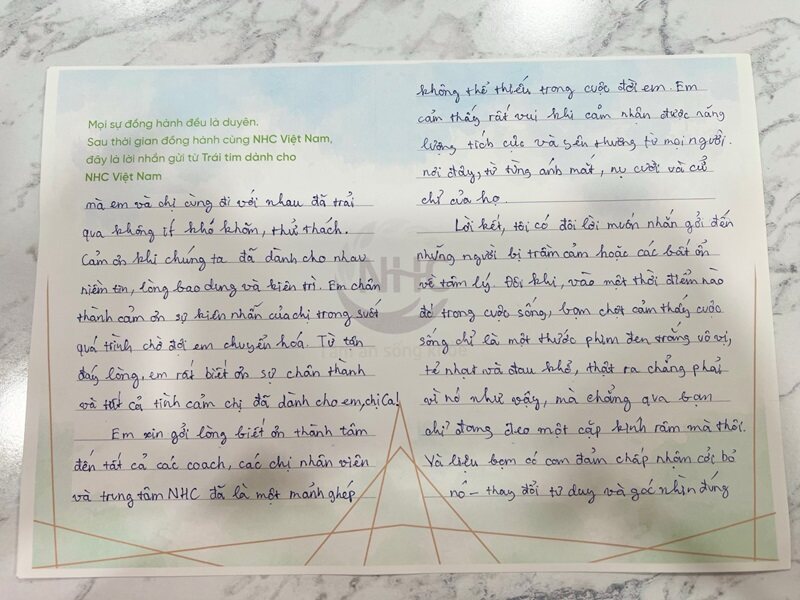 Mọi sự đồng hành đều là duyên.
Sau thời gian đồng hành cùng NHC Việt Nam,
đây là lời nhắn gửi từ Trái tim dành cho
NHC Việt Nam
mà em và chị cùng đi với nhau đã trải
qua không ít khó khăn, thử thách.
Cảm ơn khi chúng ta đã dành cho nhau
niềm tin, lòng bao dung và kiên trì. Em chân
thành cảm ơn sự kiên nhẫn của chị trong suốt
quá trình chờ đợi em chuyển hoá. Từ tận
đáy lòng, em rất biết ơn sự chân thành
và tất cả tình cảm chị đã dành cho em, chị Ca!
Em xin gởi lòng biết ơn thành tâm
đến tất cả các coach, các chị nhân viên
và trung tâm NHC đã là một mảnh ghép
không thể thiếu trong cuộc đời em. Em
cảm thấy rất vui khi cảm nhận được năng
lượng tích cực và yêu thương từ mọi người
nơi đây, từ từng ánh mắt, nụ cười và cử
chỉ của họ.
Lời kết, tôi có đôi lời muốn nhắn gởi đến
những người bị trầm cảm hoặc các bất ổn
về tâm lý. Đôi khi, vào một thời điểm nào
đó trong cuộc sống, bạn chợt cảm thấy cuộc
sống chỉ là một thước phim đen trắng vô vị,
tẻ nhạt và đau khổ, thật ra chẳng phải
vì nó như vậy, mà chẳng qua bạn
chỉ đang đeo một cặp kính râm mà thôi.
Và liệu bạn có can đảm chấp nhận cởi bỏ
nó - thay đổi tư duy và góc nhìn đúng
NHC
Tâm an sống khỏe